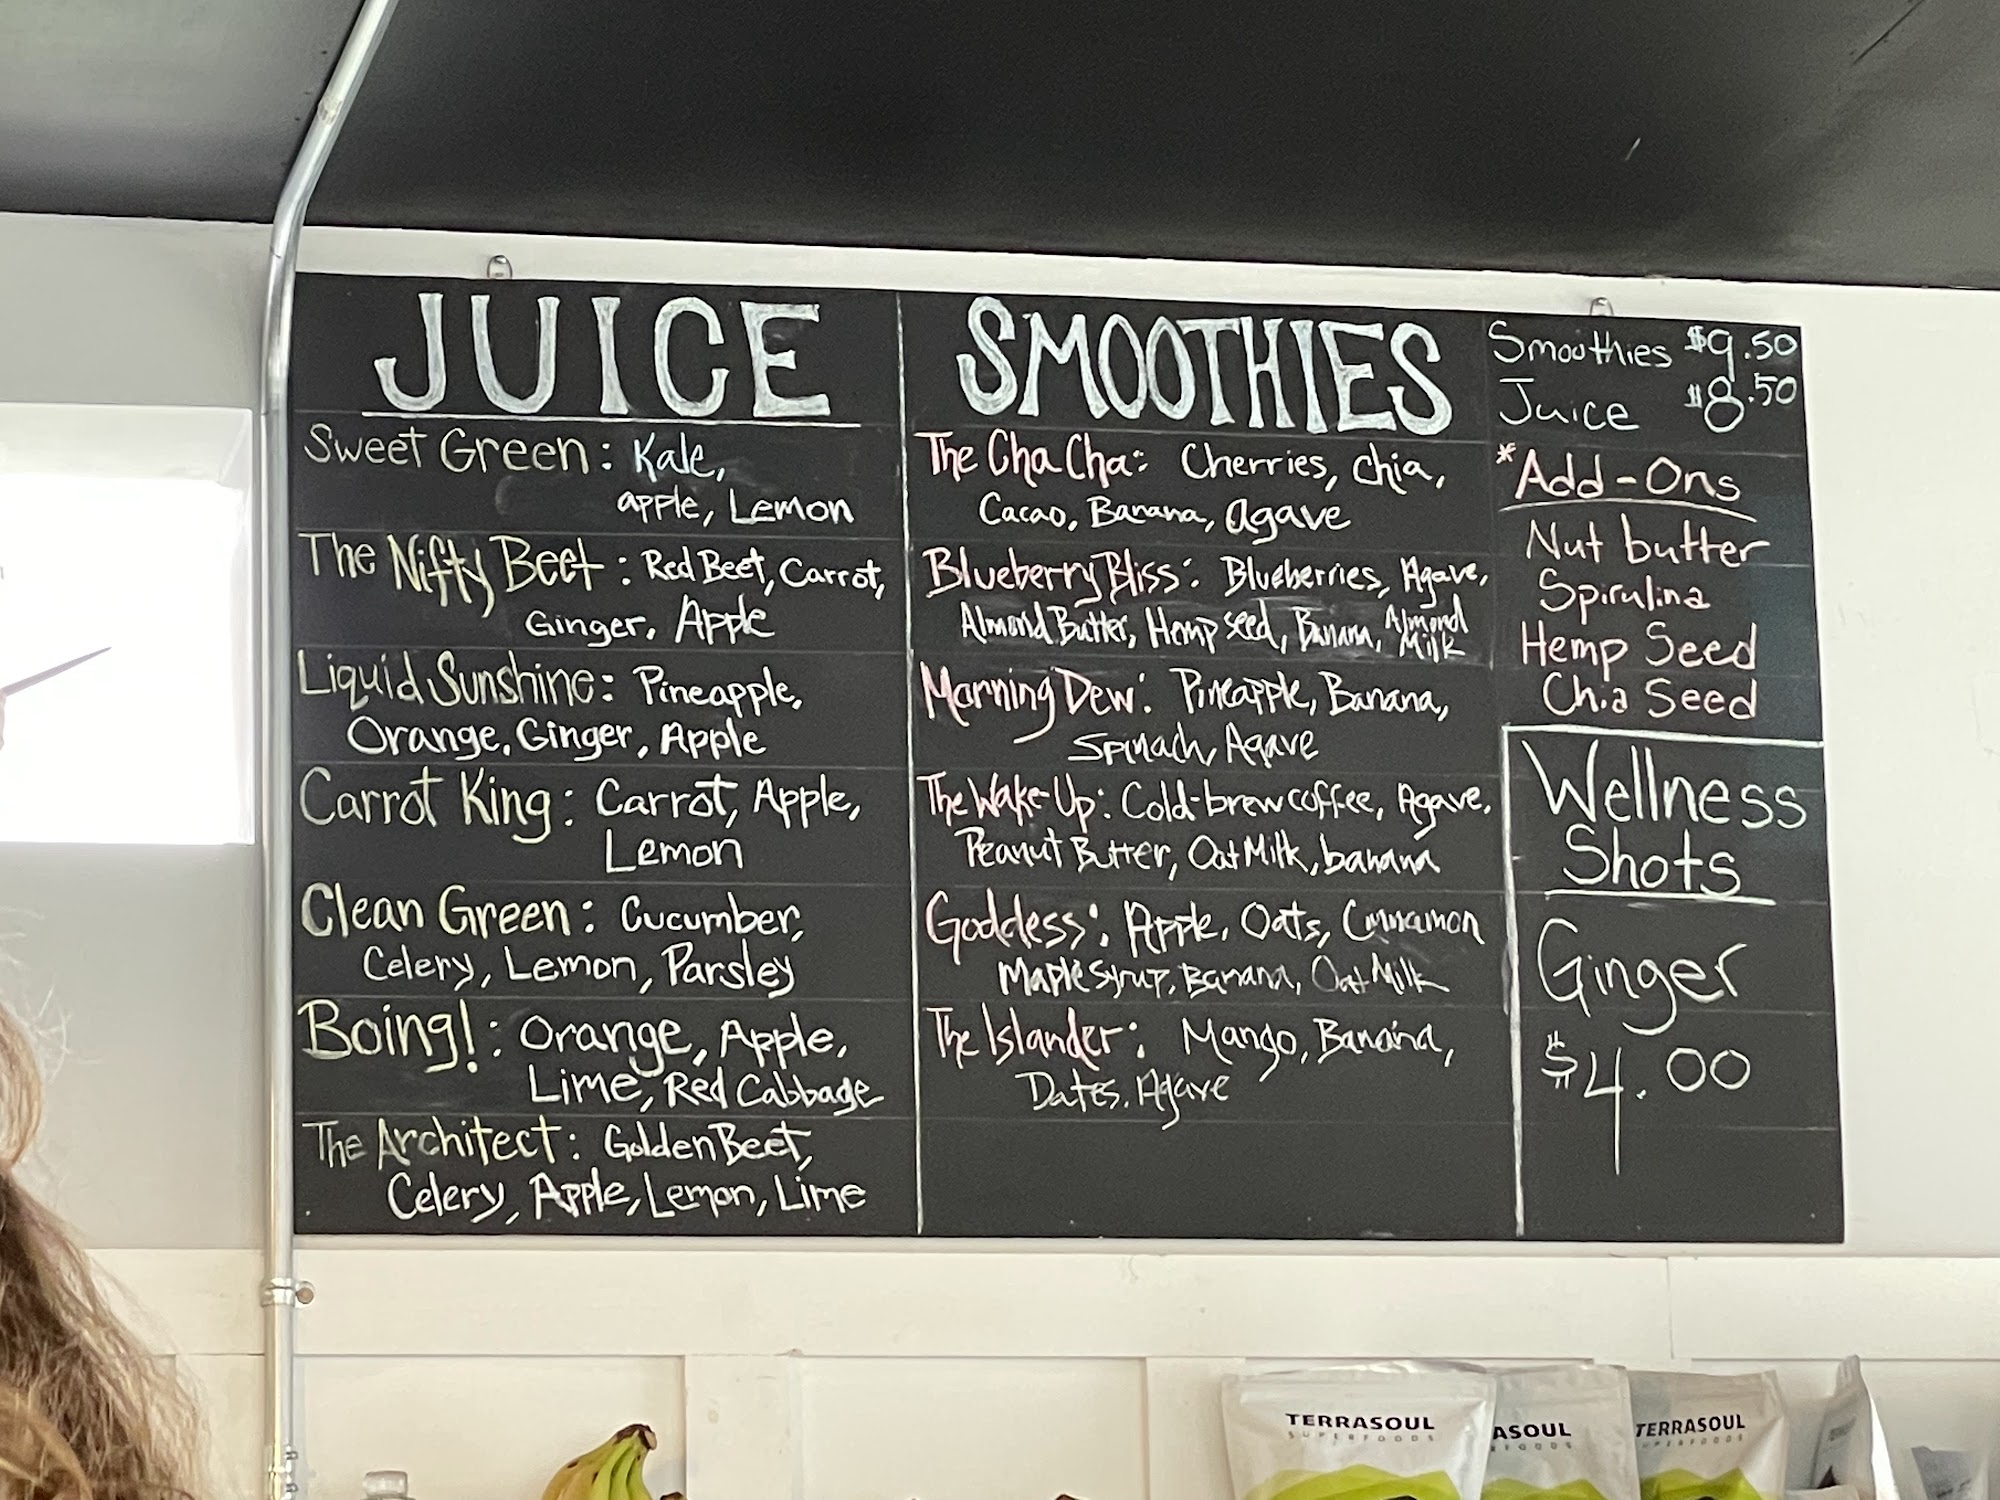 JUICE
Sweet Green: Kale,
apple, Lemon
The Nifty Beet: Red Beet, Carrot,
Ginger, Apple
Liquid Sunshine: Pineapple,
Orange, Ginger, Apple
Carrot King: Carrot, Apple,
Lemon
Clean Green: Cucumber,
Celery, Lemon, Parsley
Boing!: Orange, Apple,
Lime, Red Cabbage
The Architect: Golden Beet,
Celery, Apple, Lemon, Lime
SMOOTHIES
The Cha Cha: Cherries, chia,
Cacao, Banana, agave
Blueberry Bliss: Blueberries, Agave,
Almond Butter, Hemp seed, Banana, Almond
Milk
Morning Dew: Pineapple, Banana,
Spinach, Agave
The Wake-Up: Cold-brew coffee, Agave,
Peanut Butter, Oat Milk, banana
Goddess: Apple, Oats, Cinnamon
Maple Syrup, Banana, Oat Milk
The Islander: Mango, Banana,
Dates, Agave
Smoothies $9.50
Juice $8.50
*Add-Ons
Nut butter
Spirulina
Hemp Seed
Chia Seed
Wellness
Shots
Ginger
$4.00
TERRASOUL
SUPERFOODS
ASOUL
TERRASOUL